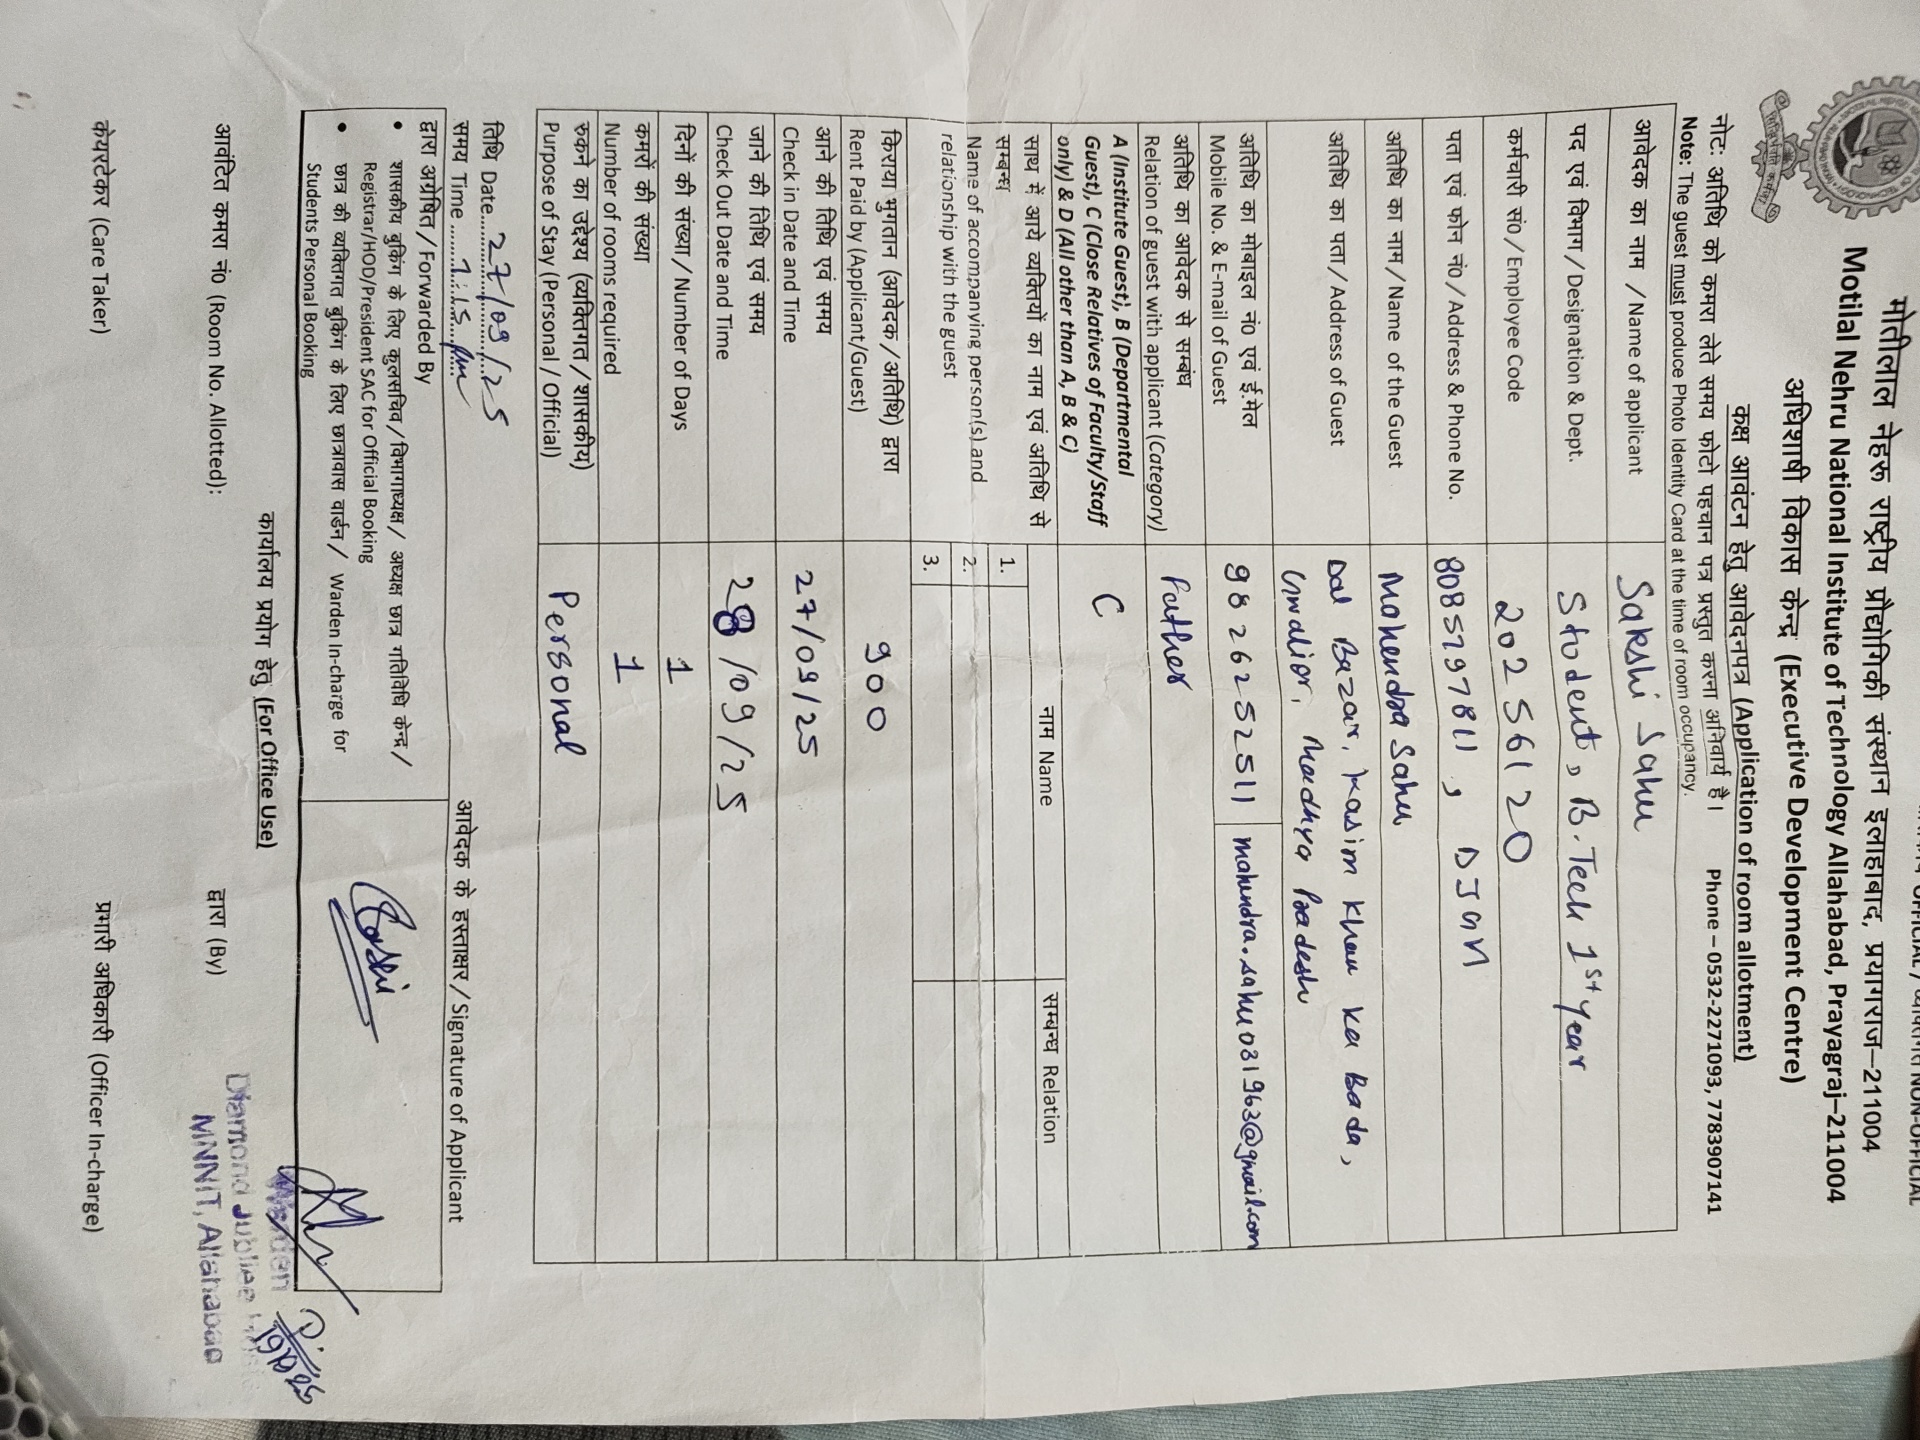 OFFICIAL / NON-OFFICIAL
मोतीलाल नेहरू राष्ट्रीय प्रौद्योगिकी संस्थान इलाहाबाद, प्रयागराज–211004
Motilal Nehru National Institute of Technology Allahabad, Prayagraj–211004
अधिशाषी विकास केन्द्र (Executive Development Centre)
कक्ष आवंटन हेतु आवेदनपत्र (Application of room allotment)
नोट: अतिथि को कमरा लेते समय फोटो पहचान पत्र प्रस्तुत करना अनिवार्य है। Phone – 0532-2271093, 7783907141
Note: The guest must produce Photo Identity Card at the time of room occupancy.
आवेदक का नाम / Name of applicant Sakshi Sahu
पद एवं विभाग / Designation & Dept. Student, B.Tech 1st year
कर्मचारी सं० / Employee Code 20256120
पता एवं फोन नं० / Address & Phone No. 8085297811, DJGH
अतिथि का नाम / Name of the Guest Mahendra Sahu
अतिथि का पता / Address of Guest Dal Bazar, Kasim Khan ka Bada,
Gwalior, Madhya Pradesh
अतिथि का मोबाइल नं० एवं ई.मेल 9826252511 mahendra.sahu031963@gmail.com
Mobile No. & E-mail of Guest
अतिथि का आवेदक से सम्बंध Father
Relation of guest with applicant (Category)
A (Institute Guest), B (Departmental C
Guest), C (Close Relatives of Faculty/Staff
only) & D (All other than A, B & C)
साथ में आये व्यक्तियों का नाम एवं अतिथि से नाम Name सम्बन्ध Relation
सम्बन्ध 1.
Name of accompanying person(s) and 2.
relationship with the guest 3.
किराया भुगतान (आवेदक / अतिथि) द्वारा 900
Rent Paid by (Applicant/Guest)
आने की तिथि एवं समय 27/09/25
Check in Date and Time
जाने की तिथि एवं समय 28/09/25
Check Out Date and Time
दिनों की संख्या / Number of Days 1
कमरों की संख्या 1
Number of rooms required
रुकने का उद्देश्य (व्यक्तिगत / शासकीय) Personal
Purpose of Stay (Personal / Official)
तिथि Date 27/09/25
समय Time 1:15 pm आवेदक के हस्ताक्षर / Signature of Applicant
द्वारा अग्रेषित / Forwarded By
• शासकीय बुकिंग के लिए कुलसचिव / विभागाध्यक्ष / अध्यक्ष छात्र गतिविधि केन्द्र /
Registrar/HOD/President SAC for Official Booking
• छात्र की व्यक्तिगत बुकिंग के लिए छात्रावास वार्डन / Warden In-charge for
Students Personal Booking
Warden
कार्यालय प्रयोग हेतु (For Office Use)
Diamond Jubilee
MNNIT, Allahabad
आवंटित कमरा नं० (Room No. Allotted): द्वारा (By)
केयरटेकर (Care Taker) प्रभारी अधिकारी (Officer In-charge)